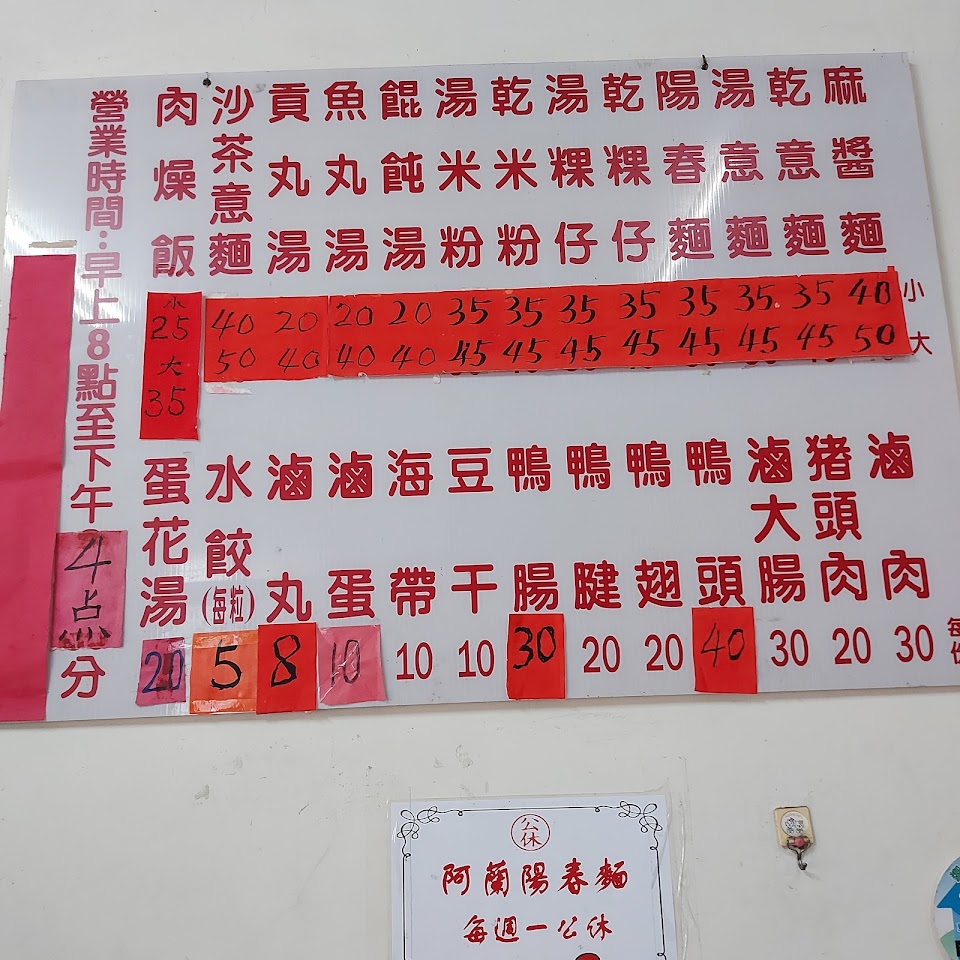 小 大
麻醬麵 40 50
乾意麵 35 45
湯意麵 35 45
陽春麵 35 45
乾粿仔 35 45
湯粿仔 35 45
乾米粉 35 45
湯米粉 35 45
餛飩湯 20 40
魚丸湯 20 40
貢丸湯 20 40
沙茶意麵 40 50
肉燥飯 小 25 大 35
每份
滷肉 30
猪頭肉 20
滷大腸 30
鴨頭 40
鴨翅 20
鴨腱 20
鴨腸 30
豆干 10
海帶 10
滷蛋 10
滷丸 8
水餃(每粒) 5
蛋花湯 20
營業時間:早上8點至下午4点分
公休
阿蘭陽春麵
每週一公休